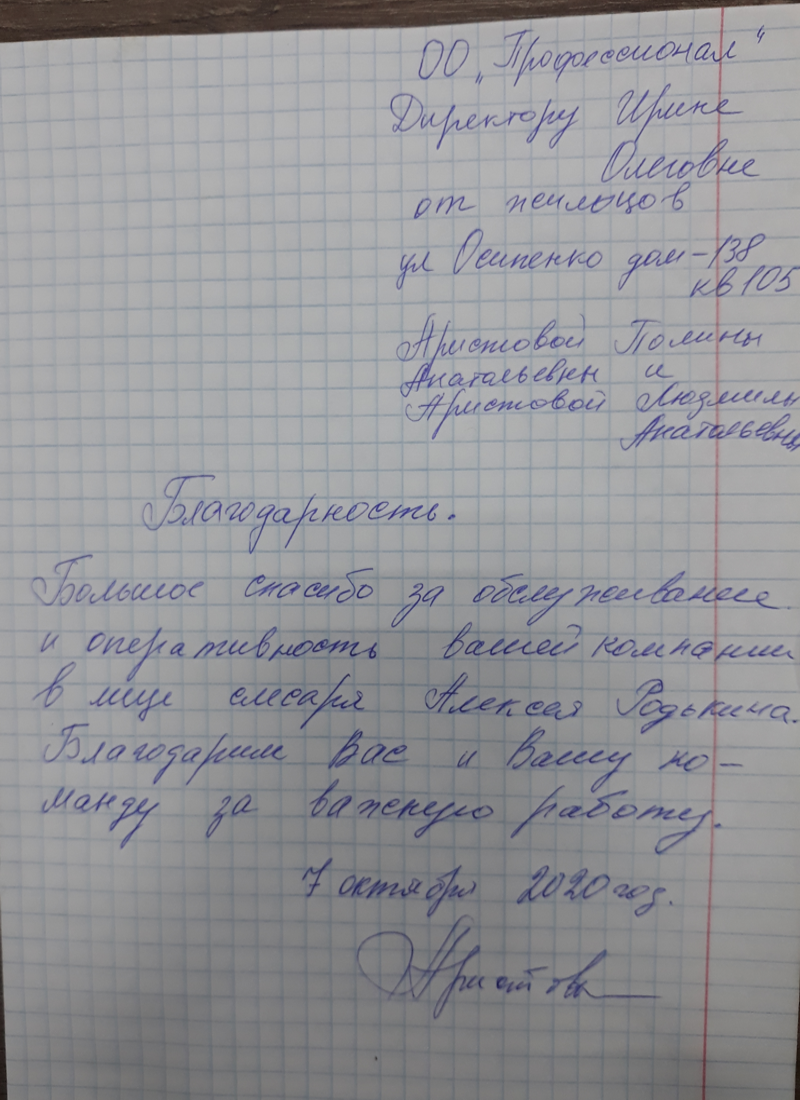 ОО „Профессионал"
Директору Ирине
Олеговне
от жильцов
ул Осипенко дом-138
кв 105
Аристовой Полины
Анатольевны и
Аристовой Людмилы
Анатольевны
Благодарность.
Большое спасибо за обслуживание
и оперативность вашей компании
в лице слесаря Алексея Родькина.
Благодарим Вас и Вашу ко-
манду за важную работу.
7 октября 2020 год.
Аристова